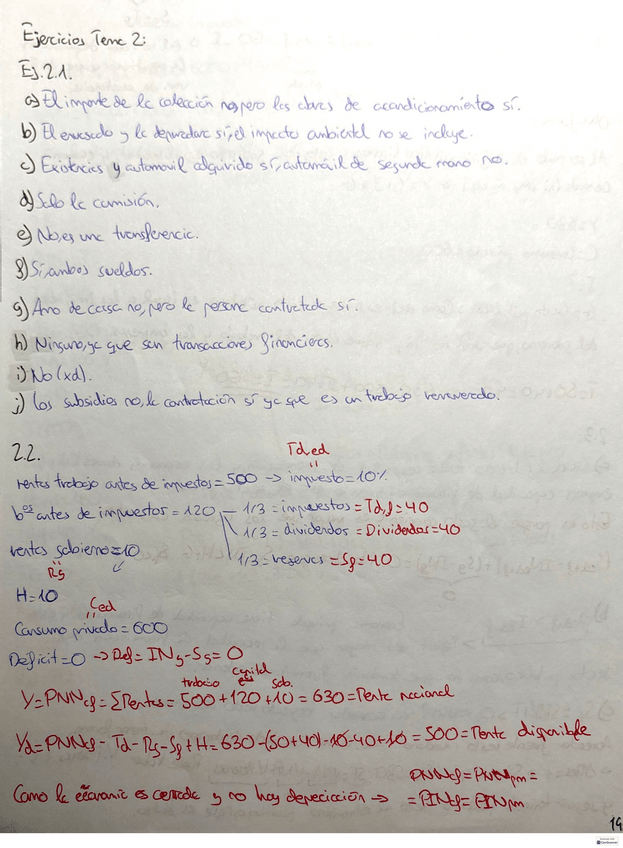 Ejercicios Tema 2:
Ej. 2.1.
a) El importe de la colección no, pero las clases de acondicionamiento sí.
b) El envasado y la depuradora sí, el impacto ambiental no se incluye.
c) Existencias y automóvil adquirido sí, automóvil de segunda mano no.
d) Solo la comisión.
e) No, es una transferencia.
f) Sí, ambos sueldos.
g) Amo de casa no, pero la persona contratada sí.
h) Ninguno, ya que son transacciones financieras.
i) No (xd).
j) Los subsidios no, la contratación sí ya que es un trabajo remunerado.
2.2.
Td,ed
rentas trabajo antes de impuestos = 500 → impuesto = 10%
bos antes de impuestos = 120 — 1/3 = impuestos = Td,f = 40
1/3 = dividendos = Dividendos = 40
rentas gobierno = 10 1/3 = reservas = Sf = 40
Rg
H = 10
Ced
Consumo privado = 600
Deficit = 0 → Def = INg - Sg = 0
trabajo capital gob.
Y = PNNcf = ΣRentas = 500 + 120 + 10 = 630 = Renta nacional
Yd = PNNcf - Td - Rg - Sf + H = 630 - (50 + 40) - 10 - 40 + 10 = 500 = Renta disponible
PNNcf = PNNpm =
Como la economia es cerrada y no hay depreciación → = PINcf = PINpm
14
CamScanner